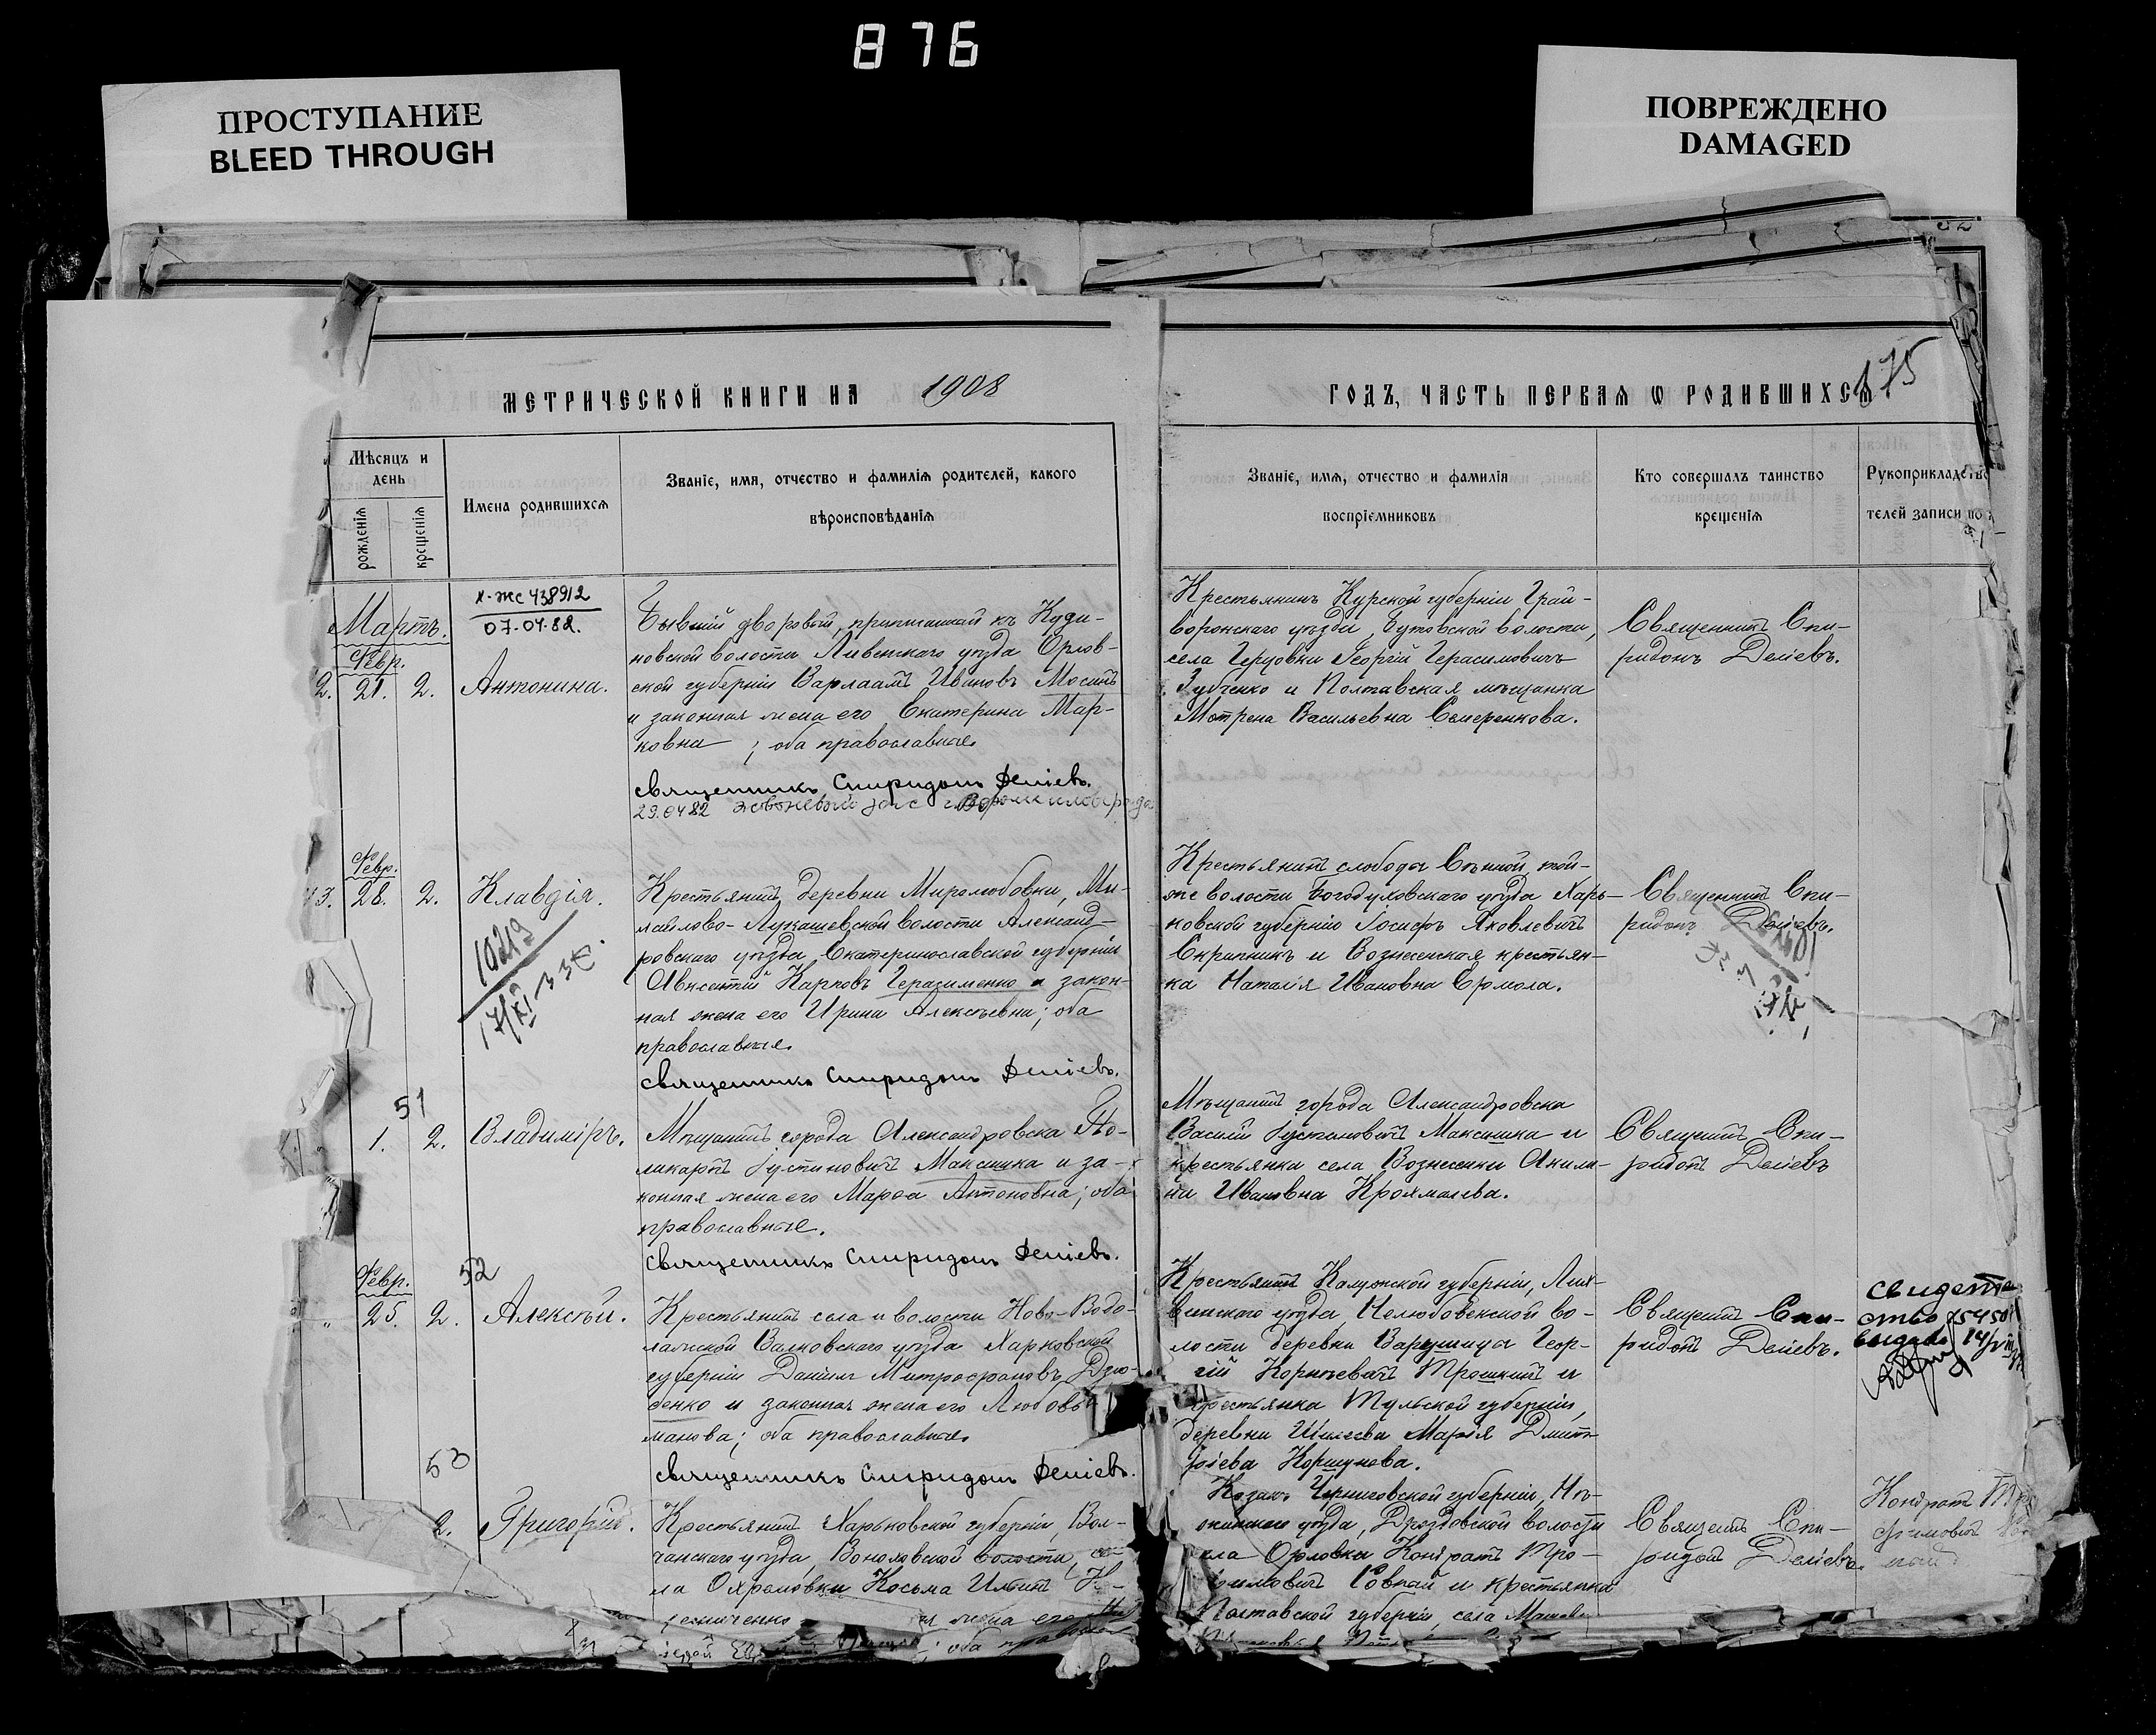 876
ПРОСТУПАНИЕ
BLEED THROUGH
ПОВРЕЖДЕНО
DAMAGED
МЕТРИЧЕСКОЙ КНИГИ НА 1908
ГОДЪ, ЧАСТЬ ПЕРВАЯ Ѡ РОДИВШИХСЯ
175
Мѣсяцъ и
день
рожденія
крещенія
Имена родившихся
Званіе, имя, отчество и фамилія родителей, какого
вѣроисповѣданія
Званіе, имя, отчество и фамилія
воспріемниковъ
Кто совершалъ таинство
крещенія
Рукоприкладство
телей записи по
Мартъ.
Февр.
2. 21. 2.
438912
07.04.82.
Антонина.
Бывшій дворовый, приписанный къ Куди-
новской волости Ливенскаго уѣзда Орлов-
ской губерніи Варлаамъ Ивановъ Мосинъ
и законная жена его Екатерина Мар-
ковна; оба православные.
священникъ Спиридонъ Деліевъ.
29.0482
Крестьянинъ Курской губерніи Грай-
воронскаго уѣзда, Бутовской волости,
села Герцовки Георгій Герасимовичъ
Зубченко и Полтавская мѣщанка
Мотрена Васильевна Семеренкова.
Священникъ Спи-
ридонъ Деліевъ.
Февр.
28. 2.
Клавдія.
10219
Крестьянинъ деревни Миролюбовки, Ми-
хайлово-Лукашевской волости Александ-
ровскаго уѣзда Екатеринославской губерніи
Авксентій Карповъ Герасименко и закон-
ная жена его Ирина Алексѣевна; оба
православные.
священникъ Спиридонъ Деліевъ.
Крестьянинъ слободы Сѣнной, той-
же волости Богодуховскаго уѣзда Харь-
ковской губерніи Іосифъ Яковлевичъ
Скрипникъ и Вознесенская крестьян-
ка Наталія Ивановна Ермола.
Священникъ Спи-
ридонъ Деліевъ.
51
1. 2.
Владиміръ.
Мѣщанинъ города Александровска По-
ликарпъ Іустиновичъ Максишка и за-
конная жена его Марѳа Антоновна; оба
православные.
священникъ Спиридонъ Деліевъ.
Мѣщанинъ города Александровска
Василій Іустиновичъ Максишка и
крестьянка села Вознесенки Акили-
на Ивановна Крохмалева.
Священникъ Спи-
ридонъ Деліевъ
52
Февр.
25. 2.
Алексѣй.
Крестьянинъ села и волости Ново-Водо-
лажской Валковскаго уѣзда Харковской
губерніи Даніилъ Митрофановъ Дзю-
бенко и законная жена его Любовь
священникъ Спиридонъ Деліевъ.
Крестьянинъ Калужской губерніи, Лих-
винскаго уѣзда, Нелюбовской во-
лости деревни Варушицы Геор-
гій Корнѣевичъ Трошкинъ и
крестьянка Тульской губерніи,
деревни Мар​ія Дмит-
ріева Коршунова.
Священникъ Спи-
ридонъ Деліевъ.
свидете
ство 75450
выдано
53
2.
Григорій.
Крестьянинъ Харьковской губерніи, Вол-
чанскаго уѣзда, волости, се-
ла Охрамовки Косьма Ильинъ
жена его
оба
Козакъ Черниговской губерніи, Нѣ-
жинскаго уѣзда, Дроздовской волости
села Орловки Кондратъ Тро-
фимовичъ и крестьянка
Полтавской губерніи, села
Священникъ Спи-
ридонъ Деліевъ.
Кондратъ